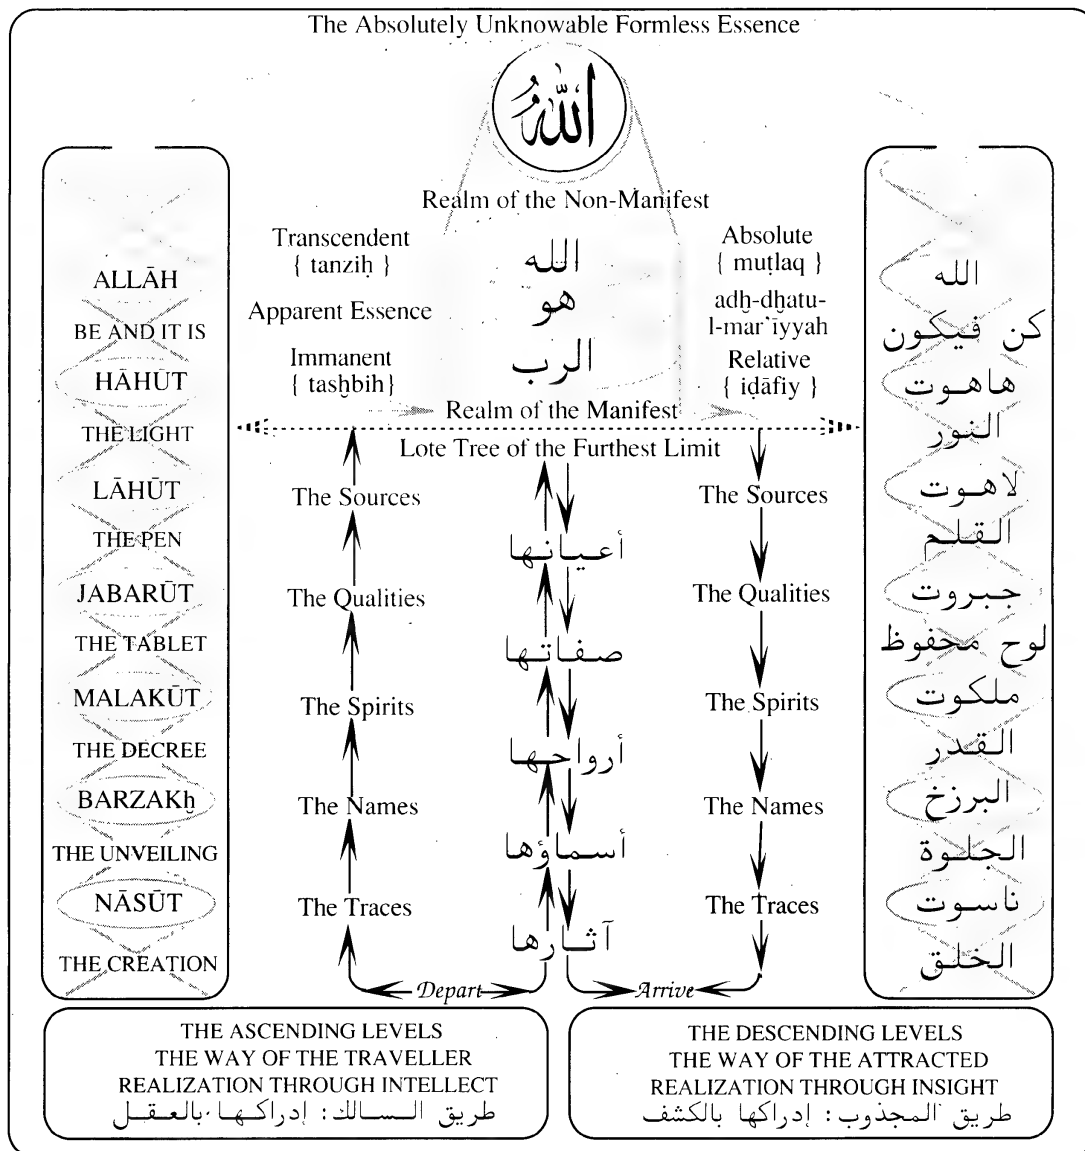 The Absolutely Unknowable Formless Essence
الله
Realm of the Non-Manifest
Transcendent
{ tanziḥ }
Apparent Essence
Immanent
{ tasẖbih}
الله
هو
الرب
Absolute
{ muṭlaq }
adẖ-dẖatu-
l-mar'īyyah
Relative
{ iḍāfiy }
Realm of the Manifest
Lote Tree of the Furthest Limit
ALLĀH
BE AND IT IS
HĀHŪT
THE LIGHT
LĀHŪT
THE PEN
JABARŪT
THE TABLET
MALAKŪT
THE DECREE
BARZAKẖ
THE UNVEILING
NĀSŪT
THE CREATION
The Sources
The Qualities
The Spirits
The Names
The Traces
أعيانها
صفاتها
أرواحها
أسماؤها
آثارها
The Sources
The Qualities
The Spirits
The Names
The Traces
الله
كن فيكون
هاهوت
النور
لاهوت
القلم
جبروت
لوح محفوظ
ملكوت
القدر
البرزخ
الجلوة
ناسوت
الخلق
Depart
Arrive
THE ASCENDING LEVELS
THE WAY OF THE TRAVELLER
REALIZATION THROUGH INTELLECT
طريق السالك: إدراكها بالعقل
THE DESCENDING LEVELS
THE WAY OF THE ATTRACTED
REALIZATION THROUGH INSIGHT
طريق المجذوب: إدراكها بالكشف